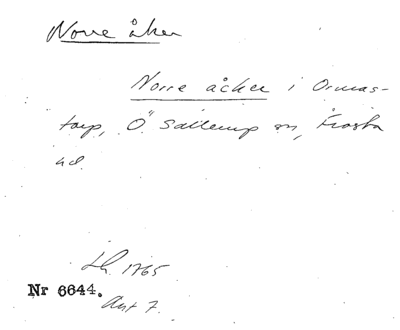 Norre åker
Norre åcker i Ormas-
torp, Ö. Sallerup sn, Frosta
hd.
Lh. 1765
Nr 6644.
Akt 7.